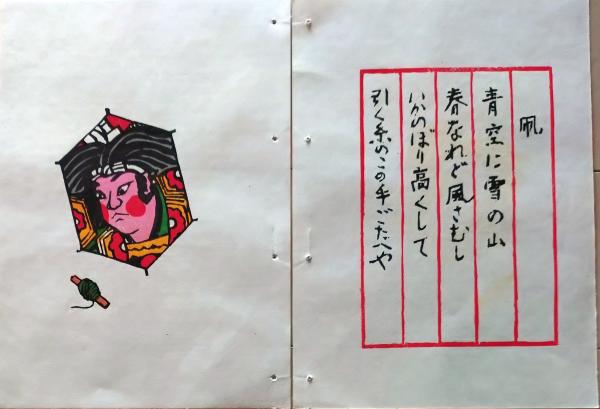 凧
青空に雪の山
春なれど風さむし
いかのぼり高くして
引く糸のこの手ごたへや